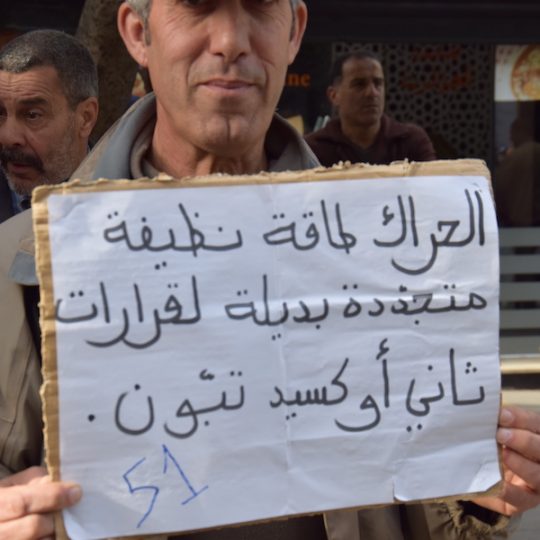 الحراك طاقة نظيفة
متجددة بديلة لقرارات
ثاني أوكسيد تبّون.
51